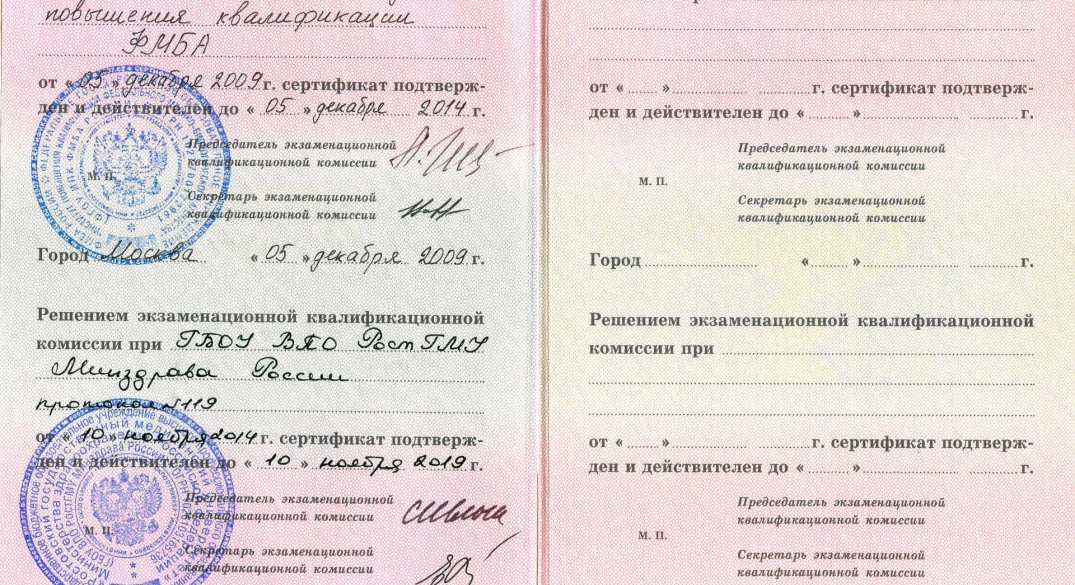 повышения квалификации
ФМБА
от « 05 » декабря 2009 г. сертификат подтверж-
ден и действителен до « 05 » декабря 2014 г.
Председатель экзаменационной
квалификационной комиссии
М. П.
Секретарь экзаменационной
квалификационной комиссии
Город Москва « 05 » декабря 2009 г.
Решением экзаменационной квалификационной
комиссии при ГБОУ ВПО РостГМУ
Минздрава России
протокол №119
от « 10 » ноября 2014 г. сертификат подтверж-
ден и действителен до « 10 » ноября 2019 г.
Председатель экзаменационной
квалификационной комиссии
М. П.
Секретарь экзаменационной
квалификационной комиссии
от « » г. сертификат подтверж-
ден и действителен до « » г.
Председатель экзаменационной
квалификационной комиссии
М. П.
Секретарь экзаменационной
квалификационной комиссии
Город « » г.
Решением экзаменационной квалификационной
комиссии при
от « » г. сертификат подтверж-
ден и действителен до « » г.
Председатель экзаменационной
квалификационной комиссии
М. П.
Секретарь экзаменационной
квалификационной комиссии